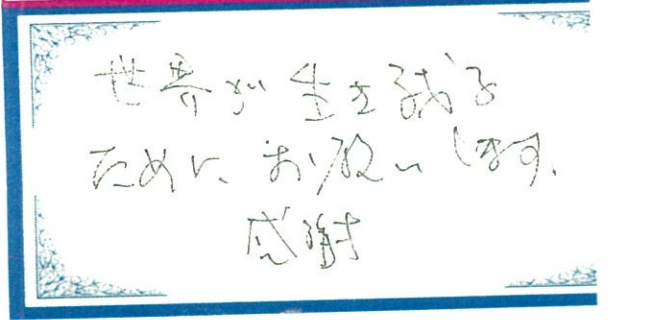 世界が生き残る
ために、お願いします。
感謝